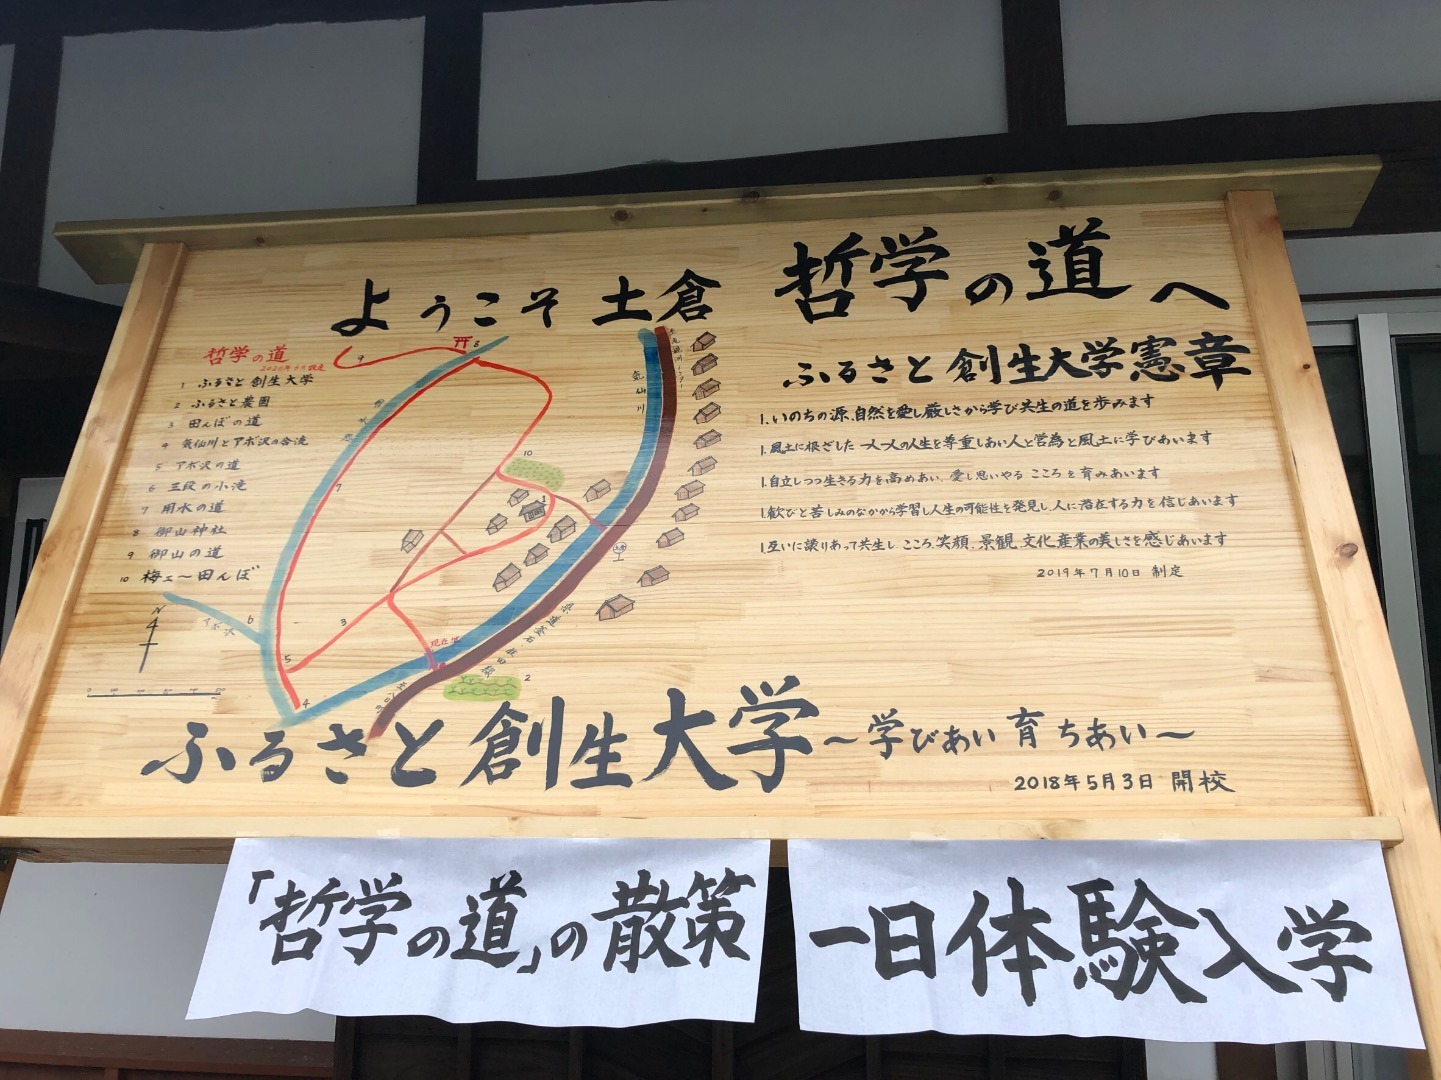 ようこそ 土倉 哲学の道へ
哲学の道
1 ふるさと創生大学
2 ふるさと農園
3 田んぼの道
4 気仙川とアボ沢の合流
5 アボ沢の道
6 三段の小滝
7 用水の道
8 御山神社
9 御山の道
10 梅ェ〜田んぼ
N
アボ沢
気仙川
現在地
1
2
3
4
5
6
7
8
9
10
ふるさと創生大学憲章
1.いのちの源、自然を愛し厳しさから学び共生の道を歩みます
1.風土に根ざした一人一人の人生を尊重しあい人と営為と風土に学びあいます
1.自立しつつ生きる力を高めあい、愛し思いやるこころを育みあいます
1.歓びと苦しみのなかから学習し人生の可能性を発見し、人に潜在する力を信じあいます
1.互いに譲りあって共生し、こころ、笑顔、景観、文化、産業の美しさを感じあいます
2019年7月10日 制定
ふるさと創生大学〜学びあい 育ちあい〜
2018年5月3日 開校
「哲学の道」の散策
一日体験入学